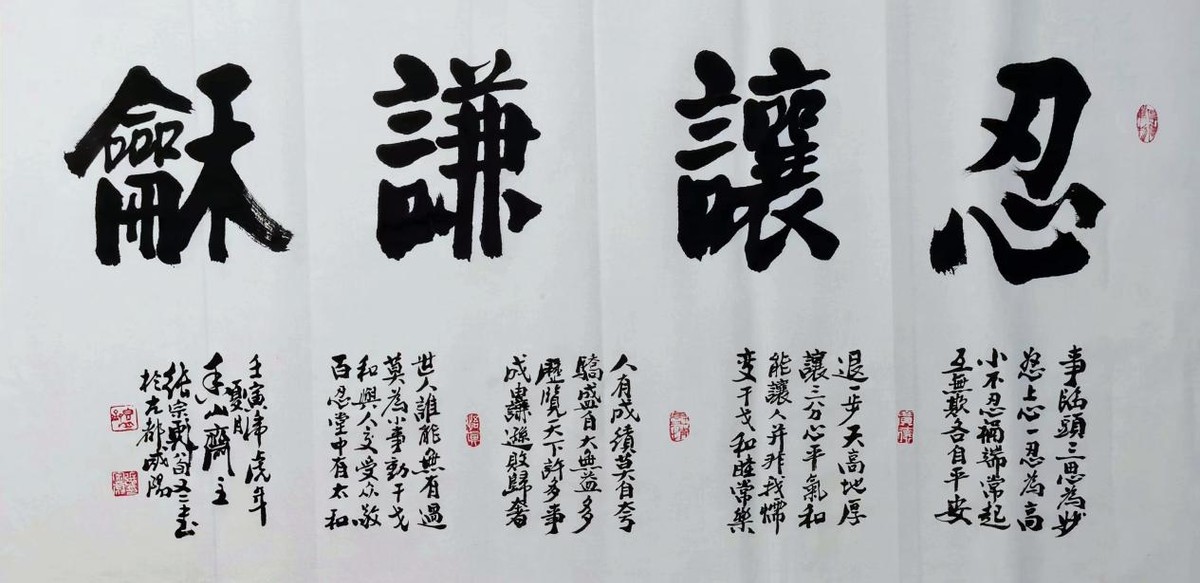 忍
讓
謙
龢
事臨頭三思為妙
怒上心一忍為高
小不忍禍端常起
互無欺各自平安
退一步天高地厚
讓三分心平氣和
能讓人并非我懦
變干戈和睦常樂
人有成績莫自夸
驕盛自大無益多
歷覽天下許多事
成由謙遜敗歸奢
世人誰能無有過
莫為小事動干戈
和興人交受众敬
百忍堂中有太和
壬寅虎年
夏月
山齋主
張宗
於古都咸陽